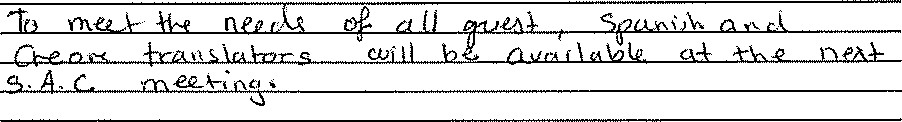 To meet the needs of all guest, Spanish and
Creore translators will be available at the next
S.A.C meeting.